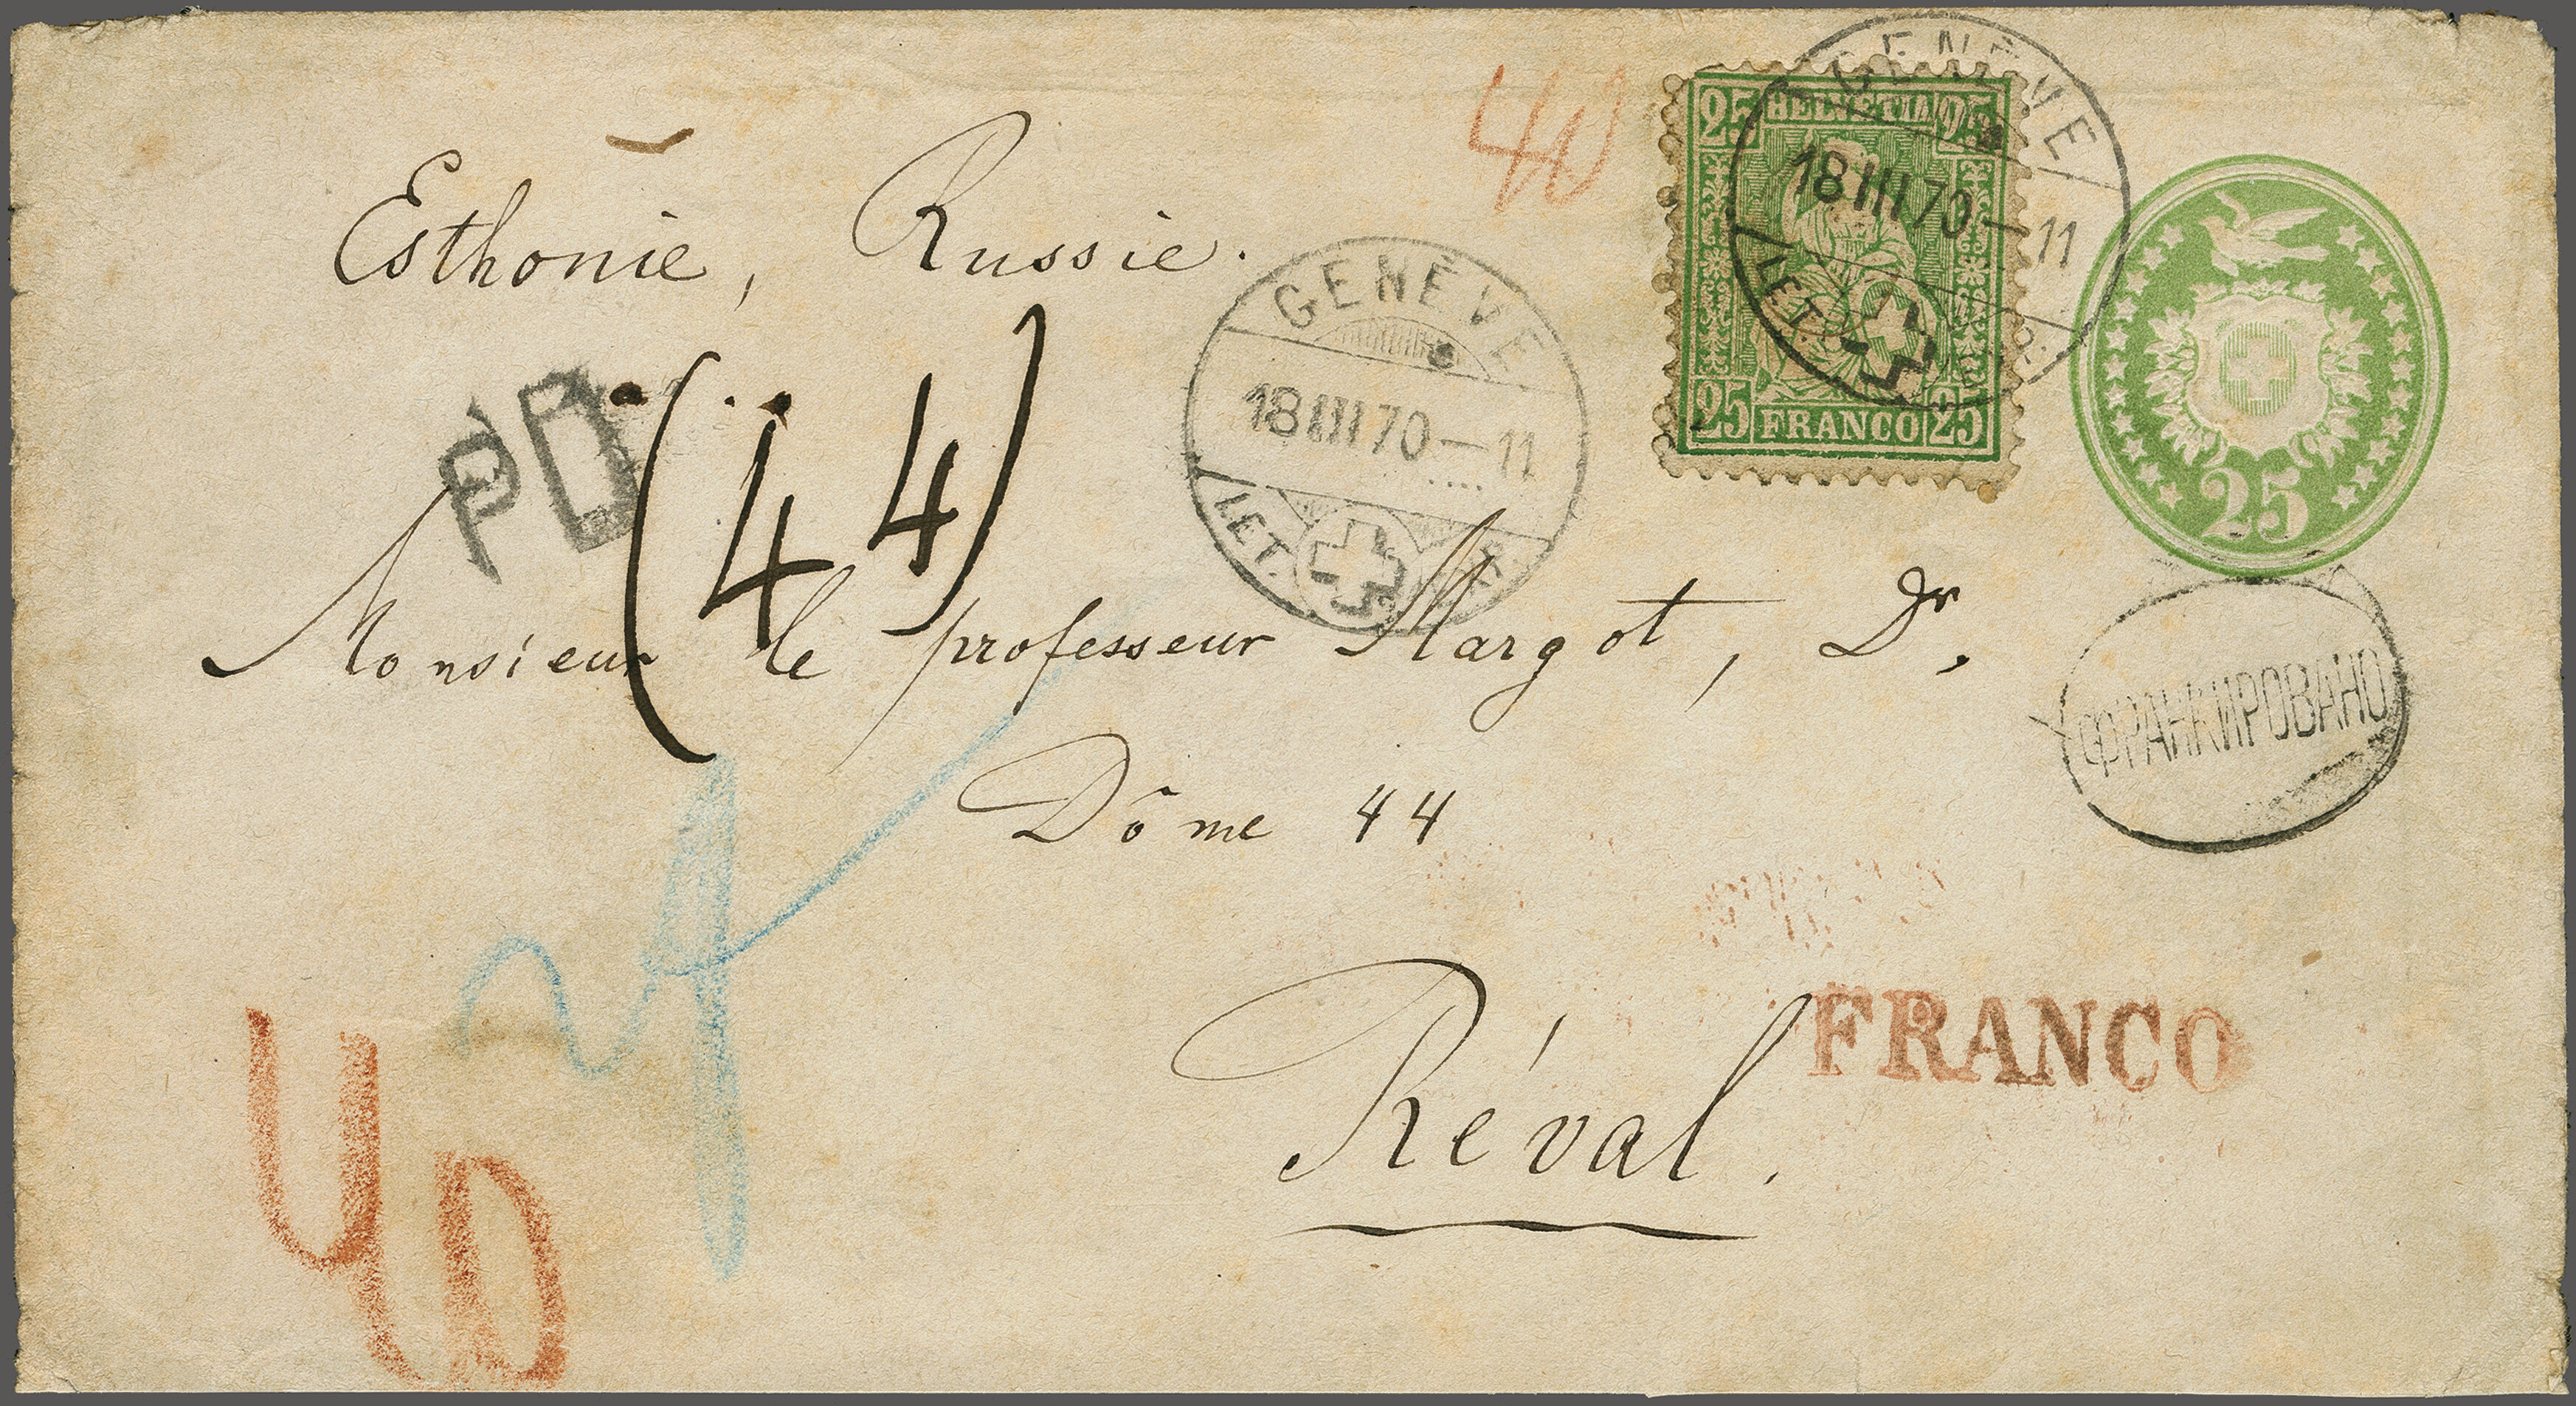 40
25 HELVETIA 25
25 FRANCO 25
GENÈVE
18 III 70 — 11
LET.
25
Esthonie, Russie.
GENÈVE
18 III 70 — 11
LET.
PD
(44)
Monsieur le professeur Margot, Dr,
ФРАНКИРОВАНО
Dôme 44
FRANCO
Réval.
40